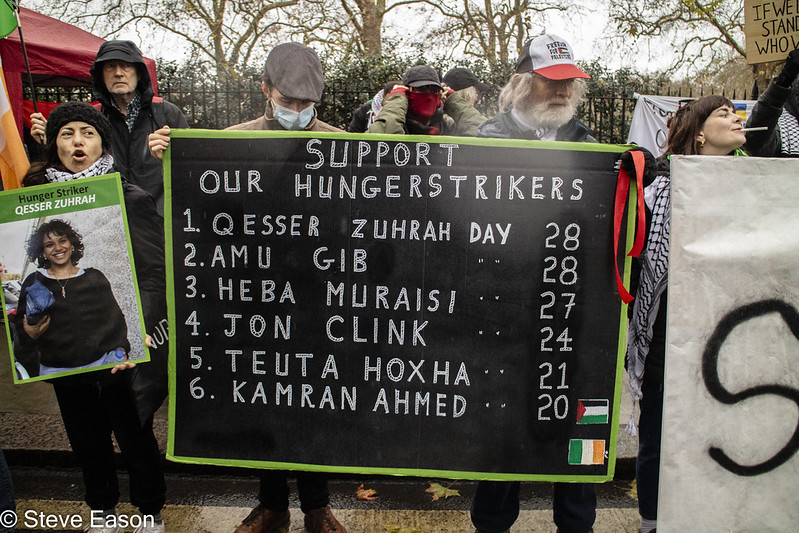 IF WE
STAND
WHO W
SUPPORT
OUR HUNGERSTRIKERS
1. QESSER ZUHRAH DAY 28
2. AMU GIB " 28
3. HEBA MURAISI " 27
4. JON CLINK " 24
5. TEUTA HOXHA " 21
6. KAMRAN AHMED " 20
Hunger Striker
QESSER ZUHRAH
S
© Steve Eason